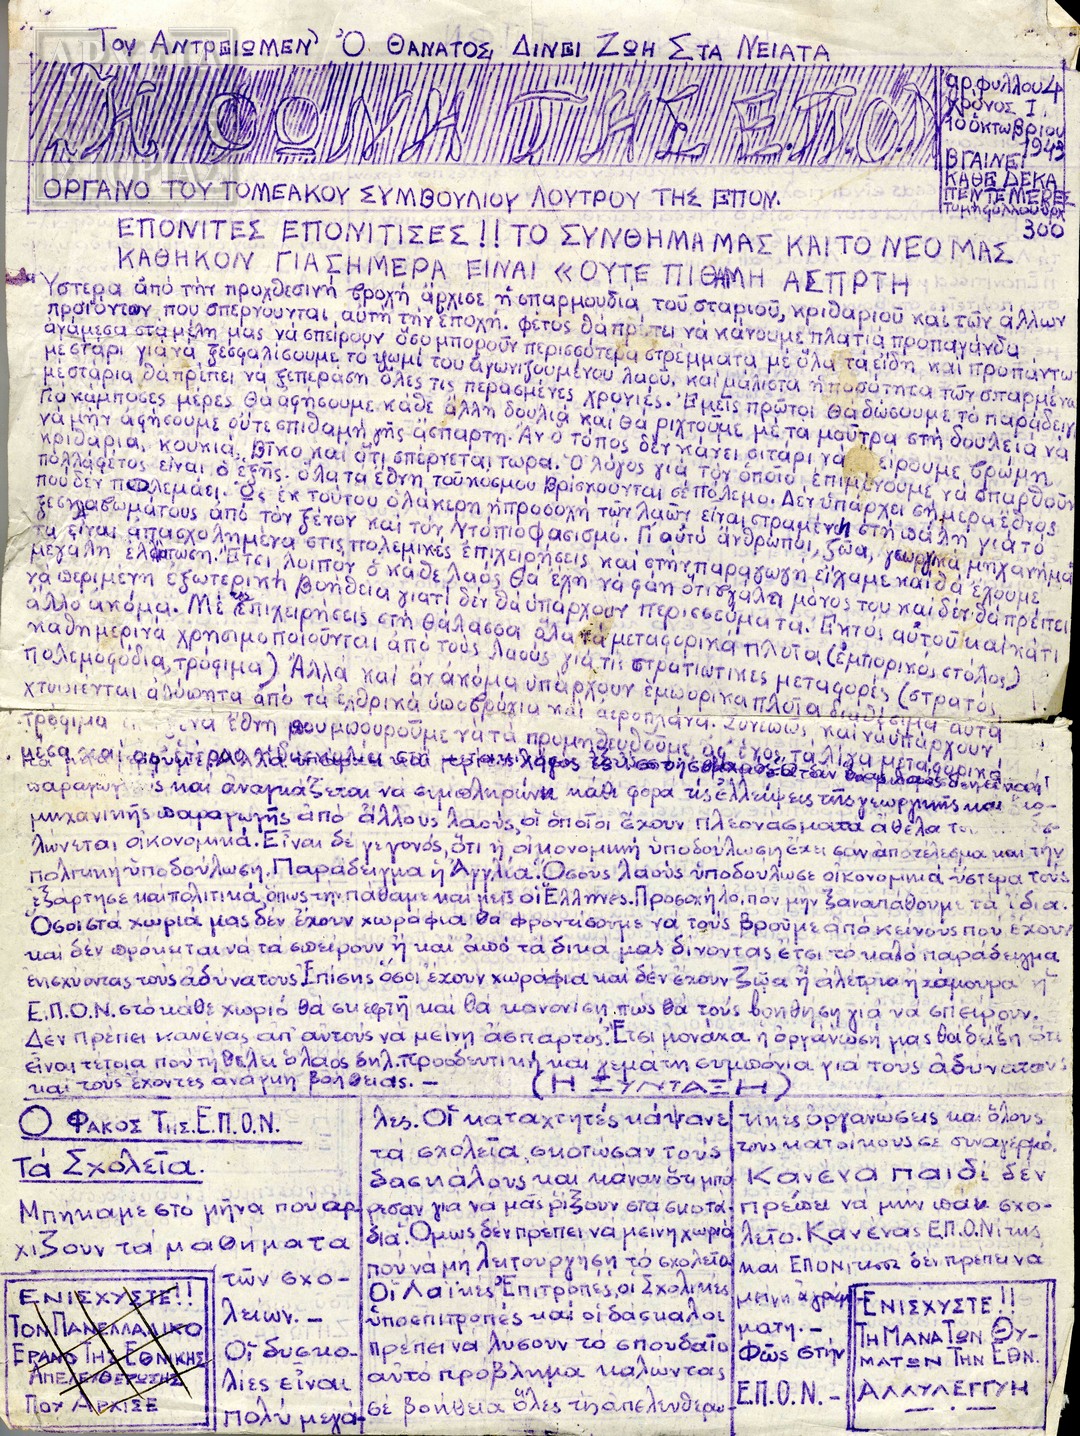 Των Αντρειωμεν' Ὁ Θανατος, Δινει Ζωη Στα Νειατα
Η ΦΩΝΗ ΤΗΣ Ε.Π.Ο.Ν
αρ. φυλλου 4
χρόνος I
10 οκτωβριου
1943
ΒΓΑΙΝΕΙ
ΚΑΘΕ ΔΕΚΑ
ΠΕΝΤΕ ΜΕΡΕΣ
τιμη φυλλου δρχ
300
ΟΡΓΑΝΟ ΤΟΥ ΤΟΜΕΑΚΟΥ ΣΥΜΒΟΥΛΙΟΥ ΛΟΥΤΡΟΥ ΤΗΣ ΕΠΟΝ.
ΕΠΟΝΙΤΕΣ ΕΠΟΝΙΤΙΣΕΣ!! ΤΟ ΣΥΝΘΗΜΑ ΜΑΣ ΚΑΙ ΤΟ ΝΕΟ ΜΑΣ
ΚΑΘΗΚΟΝ ΓΙΑ ΣΗΜΕΡΑ ΕΙΝΑΙ «ΟΥΤΕ ΠΙΘΑΜΗ ΑΣΠΡΤΗ
Ύστερα ἀπό τήν προχθεσινή βροχή ἄρχισε ἡ σπαρμουδια τοῦ σταριοῦ, κριθαριοῦ και τῶν ἄλλων
προϊόντων που σπερνουνται αὐτή τήν ἐποχή. φέτος θα πρέπει νά κάνουμε πλατιά προπαγάνδα
ἀνάμεσα στα μέλη μας νά σπείρουν ὅσο μποροῦν περισσότερα στρέμματα μέ ὅλα τα εἴδη και προπαντων
με στάρι γιανα ξεσφαλίσουμε το ψωμί του ἀγωνιζουμένου λαοῦ. και μάλιστα ἡ ποσότητα τῶν σπαρμένων
με στάρια θα πρέπει νά ξεπεράση ὅλες τις περασμένες χρονιές. Ἐμεῖς πρῶτοι θα δώσουμε το παράδειγμα
Για κάμποσες μέρες θα ἀφήσουμε κάθε ἄλλη δουλιά και θά ριχτοῦμε με τα μοῦτρα στή δουλειά νά
νά μήν ἀφήσουμε οὔτε σπιθαμή γῆς ἄσπαρτη. Αν ὁ τόπος δέν κάνει σιτάρι νά σπείρουμε βρώμη
κριθάρια, κουκιά, Βῖκο και ὅτι σπέρνεται τωρα. Ὁ λόγος για τόν ὁποῖο ἐπιμένουμε νά σπαρθοῦν
πολλά φέτος εἶναι ὁ ἑξῆς. ὅλα τά ἔθνη τοῦ κοσμου Βρίσκουνται σέ πόλεμο. Δεν ὑπάρχει σήμερα ἔθνος
που δέν πολεμάει. Ὡς ἐκ τουτου ὁλάκερη ἡ προσοχή τῶν λαῶν εἶναι στραμένη στή πάλη για τό
ξεσκλαβωμά τους ἀπό τόν ξένον και τόν Ντόπιο φασισμο. Γι αυτό ἄνθρωποι, ζῶα, γεωργικά μηχανήμα
τα εἶναι ἀπασχολημένα στις πολεμικές ἐπιχειρήσεις και στην παραγωγη εἴχαμε και θά ἔχουμε
μεγάλη ἐλάττωση. Ἔτσι λοιπον ὁ κάθε λαός θα ἔχη νά φάη ὅτι βγάλει μόνος του και δεν θά πρέπει
νά περιμενη ἐξωτερική βοήθεια γιατί δέν θά ὑπάρχουν περισσεύματα. Ἐκτός αὐτοῦ και κάτι
ἄλλο ἀκόμα. Μέ τις ἐπιχειρήσεις στή θάλασσα ὅλα τά μεταφορικά πλοῖα (ἐμπορικος στόλος)
καθημερινά χρησιμοποιοῦνται ἀπό τους λαούς για τις στρατιωτικες μεταφορές (στρατος,
πολεμοφόδια, τρόφιμα) Ἀλλά και ἄν ἀκόμα ὑπάρχουν ἐμπορικα πλοῖα διαθέσιμα αυτά
χτυπιενται ἀλύπητα ἀπό τά ἐχθρικά ὑποβρύχια και ἀεροπλάνα. Συνεπῶς και να ὑπάρχουν
τρόφιμα σε ξένα ἔθνη που μπορουμε να τα προμηθευθοῦμε ἄς ἔχος τα λίγα μεταφορικά
παραγωγικός και αναγκάζεται να συμπληρώνη κάθε φορα τις ἐλλείψεις τῆς γεωργικῆς και βιο-
μηχανικῆς παραγωγῆς ἀπό ἄλλους λαους, οἱ ὁποῖοι ἔχουν πλεονασματα ἄθελα του
λώνεται οἰκονομικά. Εἶναι δέ γεγονός, ὅτι ἡ οἰκονομική ὑποδούλωση ἔχει σαν ἀποτέλεσμα και τήν
πολιτική ὑποδούλωση. Παράδειγμα ἡ Ἀγγλία. Ὅσους λαούς ὑποδούλωσε οἰκονομικά ὕστερα τούς
ἐξάρτησε και πολιτικά, ὅπως τη πάθαμε και μεῖς οἱ Ἕλληνες. Προσοχή λοιπον μην ξαναπάθουμε τά ἴδια.
Ὅσοι στα χωριά μας δέν ἔχουν χωράφια θα φροντίσουμε να τούς βροῦμε ἀπό κείνους που ἔχουν
και δέν πρόκειται νά τα σπείρουν ἤ και ἀπό τά δικά μας δίνοντας ἔτσι τό καλό παράδειγμα
ἐνισχύοντας τους ἀδύνατους. Ἐπίσης ὅσοι ἔχουν χωράφια και δέν ἔχουν ζῷα ἤ ἀλέτρια ἤ χάμουρα ἡ
Ε.Π.Ο.Ν. στό κάθε χωριό θά σκεφτῆ και θά κανονίση πῶς θά τους βοηθήση γιά να σπείρουν.
Δεν πρέπει κανένας ἀπ αὐτους να μείνη ἄσπαρτος. Ἔτσι μονάχα ἡ ὀργάνωσή μας θά δείξη ὅτι
εἶναι τέτοια που τή θέλει ὁ λαος δηλ. προοδευτική και γεμάτη συμπόνια για τους ἀδύνατους
και τους ἔχοντες ἀνάγκη βοήθειας. —
(Η ΣΥΝΤΑΞΗ)
Ο Φακος Της Ε.Π.Ο.Ν.
Τά Σχολεῖα.
Μπήκαμε στο μήνα που αρ-
χίζουν τά μαθήματα
τῶν σχο-
λείων. —
Οἱ δυσκο-
λίες εἶναι
πολύ μεγά-
ΕΝΙΣΧΥΣΤΕ!!
ΤΟΝ ΠΑΝΕΛΛΑΔΙΚΟ
ΕΡΑΝΟ ΤΗΣ ΕΘΝΙΚΗΣ
ΑΠΕΛΕΥΘΕΡΩΤΗΣ
ΠΟΥ ΑΡΧΙΣΕ
λες. Οἱ καταχτητές κάψανε
τά σχολεῖα, σκοτωσαν τούς
δασκάλους και κάναν ὅτι μπό
ρεσαν για να μᾶς ρίξουν στα σκοτά-
δια. Ὅμως δέν πρέπει να μείνη χωριό
πού νά μή λειτουργήση τό σχολεῖο
Οἱ Λαϊκες Ἐπιτροπες, οἱ Σχολικές
ὑποεπιτροπές και οἱ δασκαλοι
πρέπει να λύσουν τό σπουδαῖο
αὐτό πρόβλημα καλώντας
σέ βοήθεια ὅλες τίς ἀπελευθερω-
τικές ὀργανώσεις και ὅλους
τους κατοίκους σε συναγερμό.
Κανενα παιδί δεν
πρέπει νά μήν πάη σχο-
λεῖο. Κανένας Ε.Π.Ο.Νίτης
και ΕΠΟΝιτισσα δεν πρέπει νά
μείνη ἀγράμ
ματη. —
Φῶς στήν
Ε.Π.Ο.Ν. —
ΕΝΙΣΧΥΣΤΕ!!
ΤΗ ΜΑΝΑ ΤΩΝ ΘΥ-
ΜΑΤΩΝ ΤΗΝ ΕΘΝ.
ΑΛΛΥΛΕΓΓΥΗ